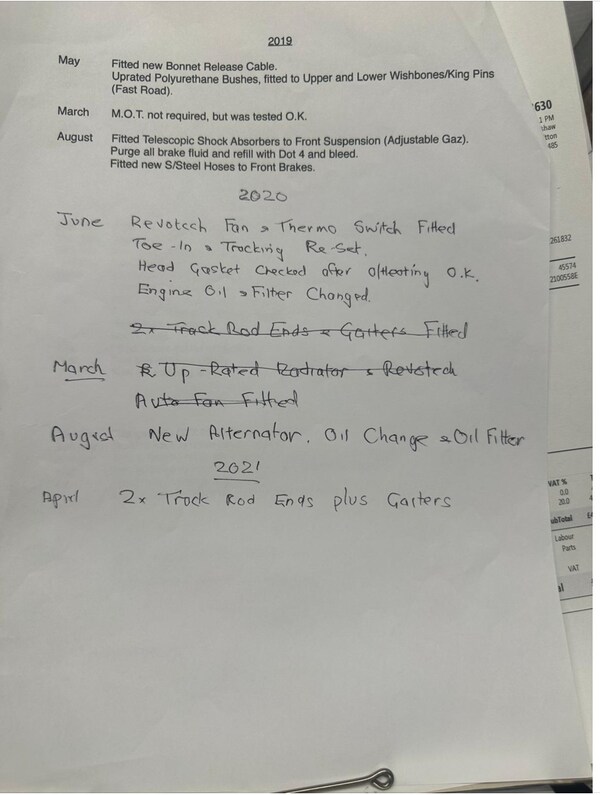 2019
May Fitted new Bonnet Release Cable.
Uprated Polyurethane Bushes, fitted to Upper and Lower Wishbones/King Pins
(Fast Road).
March M.O.T. not required, but was tested O.K.
August Fitted Telescopic Shock Absorbers to Front Suspension (Adjustable Gaz).
Purge all brake fluid and refill with Dot 4 and bleed.
Fitted new S/Steel Hoses to Front Brakes.
2020
June Revotech Fan & Thermo Switch Fitted
Toe-In & Tracking Re-Set.
Head Gasket Checked after o/Heating O.K.
Engine Oil & Filter Changed.
2x Track Rod Ends & Gaiters Fitted
March Up-Rated Radiator & Revotech
Auto Fan Fitted
August New Alternator, Oil Change & Oil Filter
2021
April 2x Track Rod Ends plus Gaiters
630
1 PM
shaw
tton
485
261832
45574
2100558E
VAT %
0.0
20.0
ubTotal
Labour
Parts
VAT
al